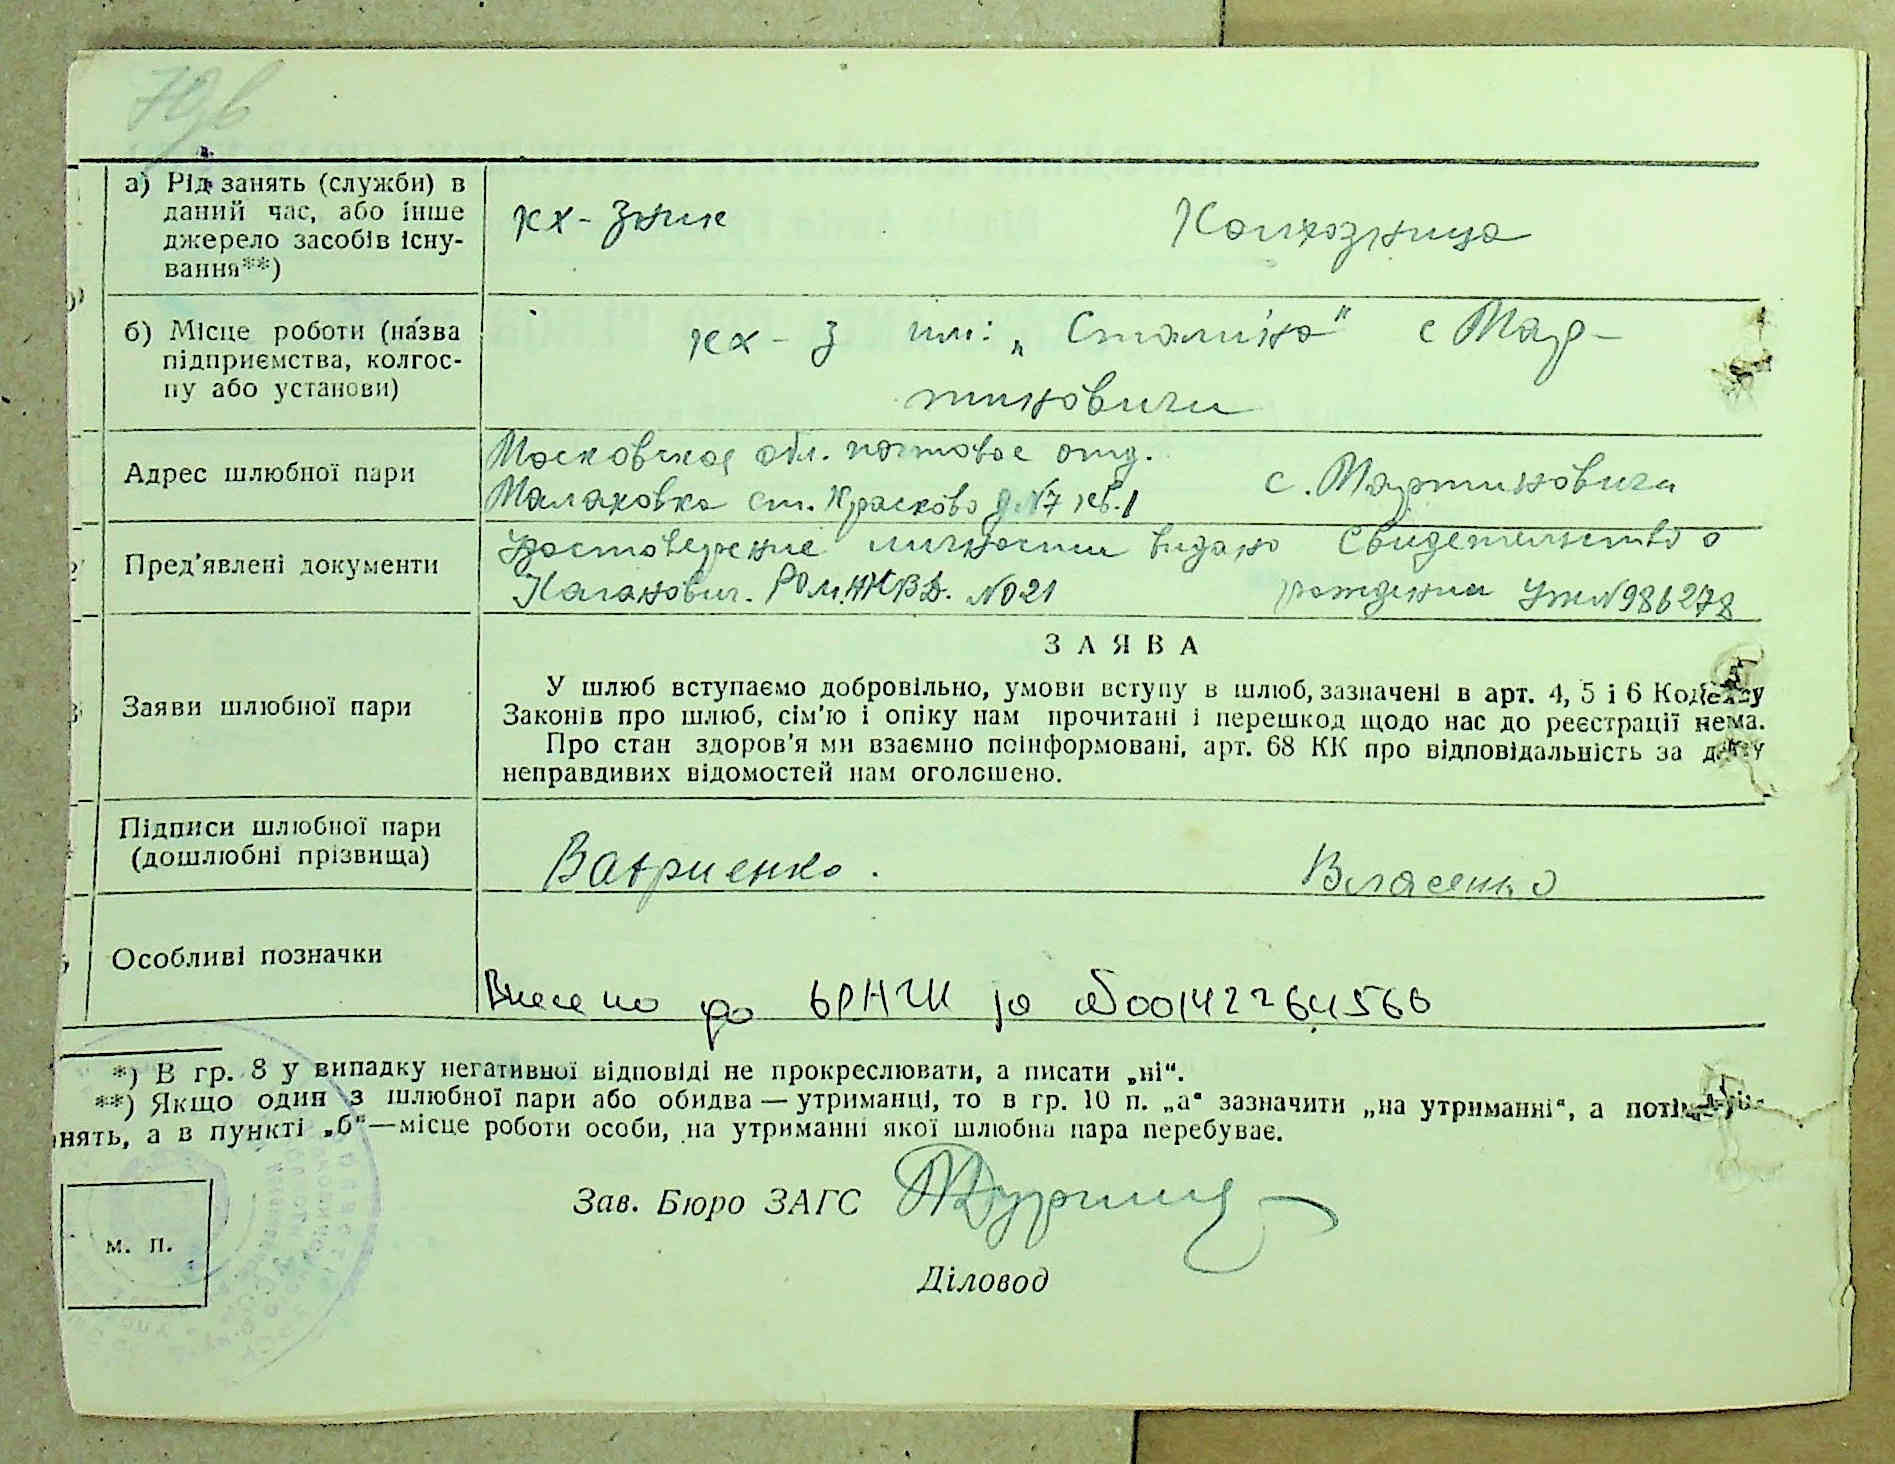 70в
а) Рід занять (служби) в
даний час, або інше
джерело засобів існу-
вання**)
кх-зник
Колхозница
б) Місце роботи (назва
підприємства, колгос-
пу або установи)
кх-з им: „Сталіна" с Мар-
тиновичи
Адрес шлюбної пари
Московская обл. почтовое отд.
Малаховка ст. Красково д. №7 кв. 1
с. Мартиновичи
Пред'явлені документи
Удостоверение личности видано
Каганович. РОм.НКВД. №021
Свидетельство о
рождении УЖ№986278
Заяви шлюбної пари
ЗАЯВА
У шлюб вступаємо добровільно, умови вступу в шлюб, зазначені в арт. 4, 5 і 6 Кодексу
Законів про шлюб, сім'ю і опіку нам прочитані і перешкод щодо нас до реєстрації нема.
Про стан здоров'я ми взаємно поінформовані, арт. 68 КК про відповідальність за дачу
неправдивих відомостей нам оголошено.
Підписи шлюбної пари
(дошлюбні прізвища)
Власенко
Особливі позначки
Внесено до
00142264566
*) В гр. 8 у випадку негативної відповіді не прокреслювати, а писати „ні".
**) Якщо один з шлюбної пари або обидва — утриманці, то в гр. 10 п. „а" зазначити „на утриманні", а потім
нять, а в пункті „б"—місце роботи особи, на утриманні якої шлюбна пара перебуває.
Зав. Бюро ЗАГС
м. п.
Діловод